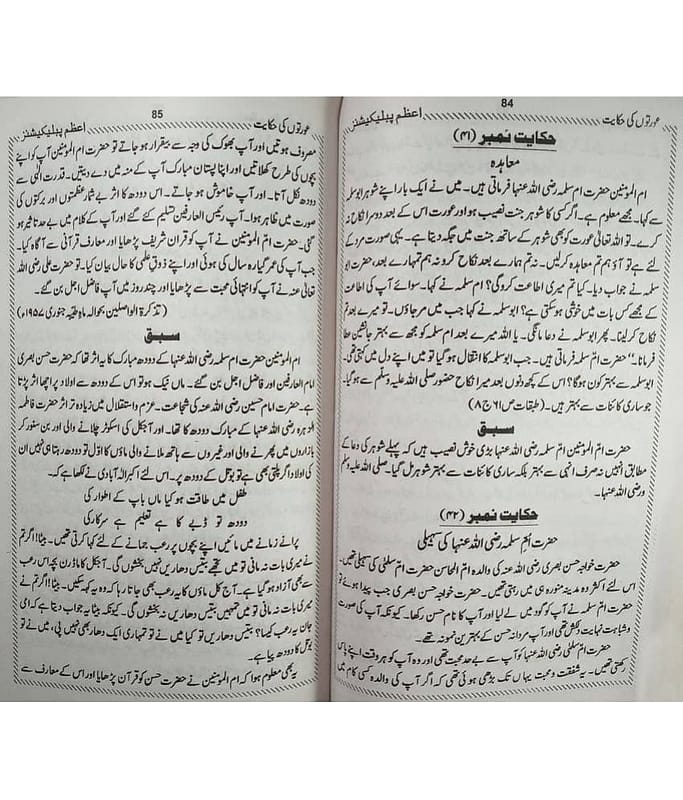 84
عورتوں کی حکایت
اعظم پبلیکیشنز
حکایت نمبر (۴۱)
معاہدہ
ام المومنین حضرت ام سلمہ رضی اللہ عنہا فرماتی ہیں۔ میں نے ایک بار اپنے شوہر ابو سلمہ
سے کہا۔ مجھے معلوم ہے۔ اگر کسی کا شوہر جنت نصیب ہو اور عورت اس کے بعد دوسرا نکاح نہ
کرے۔ تو اللہ تعالیٰ عورت کو بھی شوہر کے ساتھ جنت میں جگہ دیتا ہے۔ یہی صورت مرد کے
لئے ہے تو آؤ ہم تم معاہدہ کر لیں۔ نہ تم ہمارے بعد نکاح کرو نہ ہم تمہارے بعد۔ حضرت ابو
سلمہ نے جواب دیا۔ کیا تم میری اطاعت کرو گی؟ ام سلمہ نے کہا۔ سوائے آپ کی اطاعت
کے مجھے کس بات میں خوشی ہو سکتی ہے؟ ابو سلمہ نے کہا جب میں مر جاؤں۔ تو میرے بعد تم
نکاح کر لینا۔ پھر ابو سلمہ نے دعا مانگی۔ یا اللہ میرے بعد ام سلمہ کو مجھ سے بہتر جانشین عطا
فرمانا۔‘‘ حضرت ام سلمہ فرماتی ہیں۔ جب ابو سلمہ کا انتقال ہو گیا تو میں اپنے دل میں کہتی تھی۔
ابو سلمہ سے بہتر کون ہو گا؟ اس کے کچھ دنوں بعد میرا نکاح حضور صلی اللہ علیہ وسلم سے ہو گیا۔
جو ساری کائنات سے بہتر ہیں۔ (طبقات ص ۶۱ ج ۸)
سبق
حضرت ام المومنین ام سلمہ رضی اللہ عنہا بڑی خوش نصیب ہیں کہ پہلے شوہر کی دعا کے
مطابق انہیں نہ صرف انہی سے بہتر بلکہ ساری کائنات سے بہتر شوہر مل گیا۔ صلی اللہ علیہ وسلم
و رضی اللہ عنہا۔
حکایت نمبر (۴۲)
حضرت ام سلمہ رضی اللہ عنہا کی سہیلی
حضرت خواجہ حسن بصری رضی اللہ عنہ کی والدہ ام المحاسن حضرت ام سلمٰی کی سہیلی تھیں۔
اس لئے اکثر وہ مدینہ منورہ ہی میں رہتی تھیں۔ حضرت خواجہ حسن بصری جب پیدا ہوئے تو
حضرت ام سلمہ نے آپ کو گود میں لے لیا اور آپ کا نام حسن رکھا۔ کیونکہ آپ کی صورت
و شباہت نہایت دلکش تھی اور آپ مردانہ حسن کے بہترین نمونہ تھے۔
حضرت ام سلمٰی رضی اللہ عنہا کو آپ سے بے حد محبت تھی اور وہ آپ کو ہر وقت اپنے پاس
رکھتی تھیں۔ یہ شفقت و محبت یہاں تک بڑھی ہوئی تھی کہ اگر آپ کی والدہ کسی کام میں
85
عورتوں کی حکایت
اعظم پبلیکیشنز
مصروف ہوتیں اور آپ بھوک کی وجہ سے بیقرار ہو جاتے تو حضرت ام المومنین آپ کو اپنے
بچوں کی طرح کھلاتیں اور اپنا پستان مبارک آپ کے منہ میں دے دیتیں۔ قدرت الٰہی سے
دودھ نکل آتا۔ اور آپ خاموش ہو جاتے۔ اس دودھ کا اثر بے شمار عظمتوں اور برکتوں کی
صورت میں ظاہر ہوا۔ آپ رئیس العارفین تسلیم کئے گئے اور آپ کے کلام میں بے حد تاثیر ہو
گئی۔ حضرت ام المومنین نے آپ کو قرآن شریف پڑھایا اور معارف قرآنی سے آگاہ کیا۔
جب آپ کی عمر گیارہ سال کی ہوئی اور اپنے ذوق علمی کا حال بیان کیا۔ تو حضرت علی رضی اللہ
تعالیٰ عنہ نے آپ کو انتہائی محبت سے پڑھایا اور چند روز میں آپ فاضل اجل بن گئے۔
(تذکرۃ الواصلین بحوالہ ماہ طیبہ جنوری ۱۹۵۷ء)
سبق
ام المومنین حضرت ام سلمہ رضی اللہ عنہا کے دودھ مبارک کا یہ اثر تھا کہ حضرت حسن بصری
امام العارفین اور فاضل اجل بن گئے۔ ماں نیک ہو تو اس کے دودھ سے اولاد پر اچھا اثر پڑتا
ہے۔ حضرت امام حسین رضی اللہ عنہ کی شجاعت۔ عزم و استقلال میں زیادہ تر اثر حضرت فاطمہ
الزہرہ رضی اللہ عنہا کے مبارک دودھ کا تھا۔ اور آجکل کی اسکوٹر چلانے والی اور بن سنور کر
بازاروں میں پھرنے والی اور غیروں سے ہاتھ ملانے والی ماؤں کا اوّل تو دودھ رہتا ہی نہیں ان
کی اولاد اگر پلتی بھی ہے تو بوتل کے دودھ پر۔ اس لئے اکبر الہ آبادی نے لکھا ہے کہ۔
طفل میں طاقت ہو کیا ماں باپ کے اطوار کی
دودھ تو ڈبے کا ہے تعلیم ہے سرکار کی
پرانے زمانے میں مائیں اپنے بچوں پر رعب جمانے کے لئے کہا کرتی تھیں۔ بیٹا! اگر تم
نے میری بات نہ مانی تو میں تجھے بتیس دھاریں نہیں بخشوں گی۔ آجکل کا ماڈرن بچہ اس رعب
سے بھی آزاد ہو گیا ہے۔ آج کل ماؤں کا یہ رعب بھی جاتا رہا کہ وہ یہ کہہ سکیں۔ بیٹا! اگر تم نے
میری بات نہ مانی تو میں تمہیں بتیس دھاریں نہ بخشوں گی۔ کیونکہ بیٹا یہ جواب دیتا ہے کہ امی
جان یہ رعب کیسا؟ بتیس دھاریں تو کیا میں نے تو تمہاری ایک دھار بھی نہیں پی، میں نے تو
بوتل کا دودھ پیا ہے۔
یہ بھی معلوم ہوا کہ ام المومنین نے حضرت حسن کو قرآن پڑھایا اور اس کے معارف سے